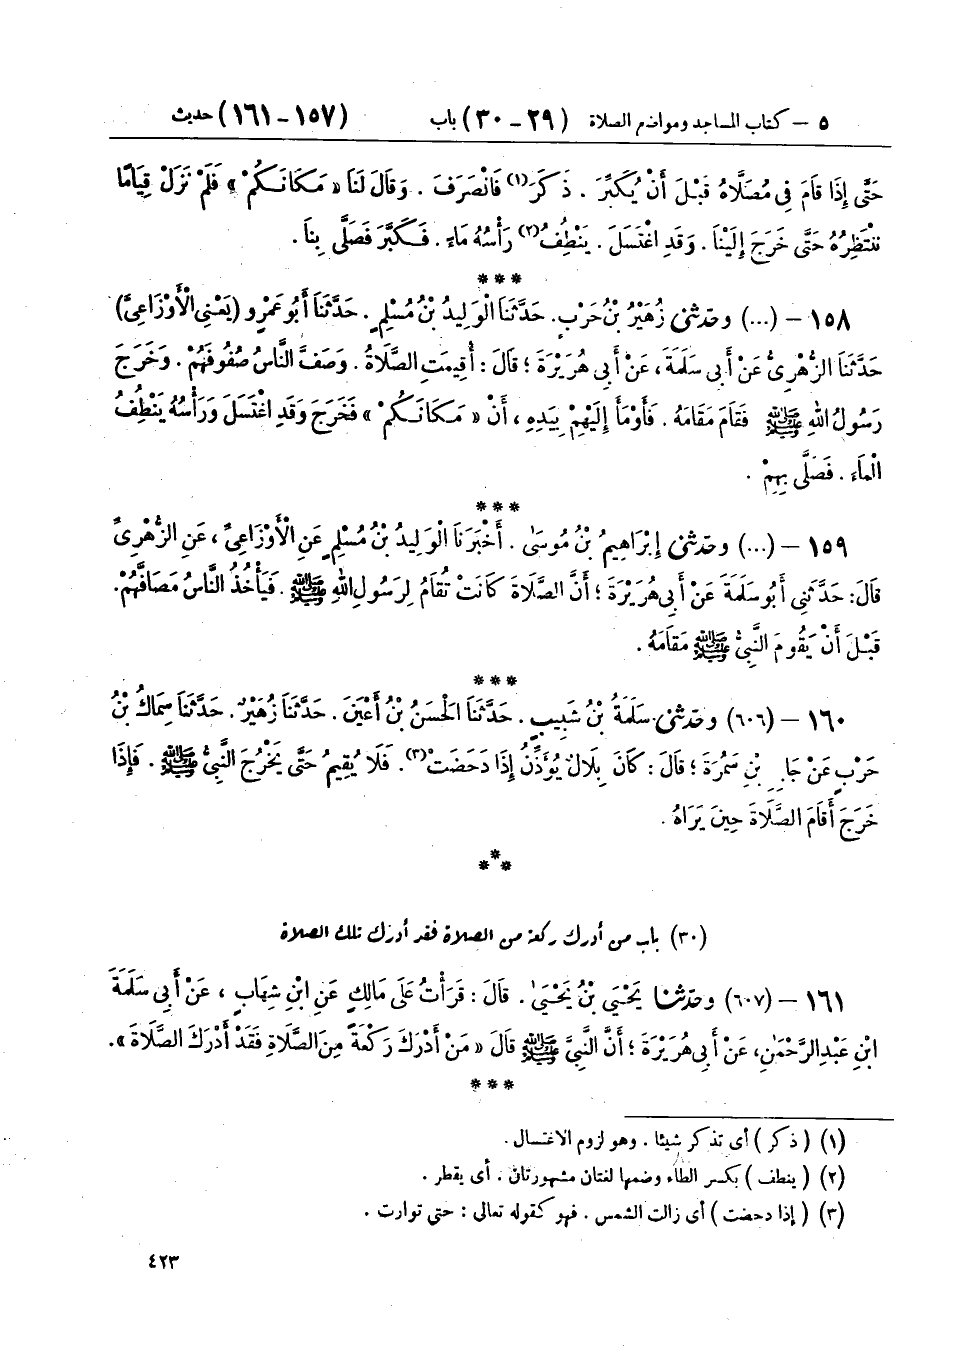 ٥ – كتاب المساجد ومواضع الصلاة (٢٩ – ٣٠) باب (١٥٧ – ١٦١) حديث
حَتَّى إِذَا قَامَ فِي مُصَلَّاهُ قَبْلَ أَنْ يُكَبِّرَ . ذَكَرَ(١) فَانْصَرَفَ . وَقَالَ لَنَا « مَكَانَكُمْ » فَلَمْ نَزَلْ قِيَامًا
نَنْتَظِرُهُ حَتَّى خَرَجَ إِلَيْنَا . وَقَدِ اغْتَسَلَ . يَنْطِفُ(٢) رَأْسُهُ مَاءً . فَكَبَّرَ فَصَلَّى بِنَا .
***
١٥٨ – (...) وحَدَّثَنِي زُهَيْرُ بْنُ حَرْبٍ . حَدَّثَنَا الْوَلِيدُ بْنُ مُسْلِمٍ . حَدَّثَنَا أَبُو عَمْرٍو (يَعْنِي الْأَوْزَاعِيَّ)
حَدَّثَنَا الزُّهْرِيُّ عَنْ أَبِي سَلَمَةَ ، عَنْ أَبِي هُرَيْرَةَ ؛ قَالَ : أُقِيمَتِ الصَّلَاةُ . وَصَفَّ النَّاسُ صُفُوفَهُمْ . وَخَرَجَ
رَسُولُ اللهِ ﷺ فَقَامَ مَقَامَهُ . فَأَوْمَأَ إِلَيْهِمْ بِيَدِهِ ، أَنْ « مَكَانَكُمْ » فَخَرَجَ وَقَدِ اغْتَسَلَ وَرَأْسُهُ يَنْطُفُ
الْمَاءَ . فَصَلَّى بِهِمْ .
***
١٥٩ – (...) وحَدَّثَنِي إِبْرَاهِيمُ بْنُ مُوسَى . أَخْبَرَنَا الْوَلِيدُ بْنُ مُسْلِمٍ عَنِ الْأَوْزَاعِيِّ ، عَنِ الزُّهْرِيِّ
قَالَ : حَدَّثَنِي أَبُو سَلَمَةَ عَنْ أَبِي هُرَيْرَةَ ؛ أَنَّ الصَّلَاةَ كَانَتْ تُقَامُ لِرَسُولِ اللهِ ﷺ . فَيَأْخُذُ النَّاسُ مَصَافَّهُمْ .
قَبْلَ أَنْ يَقُومَ النَّبِيُّ ﷺ مَقَامَهُ .
***
١٦٠ – (٦٠٦) وحَدَّثَنِي سَلَمَةُ بْنُ شَبِيبٍ . حَدَّثَنَا الْحَسَنُ بْنُ أَعْيَنَ . حَدَّثَنَا زُهَيْرٌ . حَدَّثَنَا سِمَاكُ بْنُ
حَرْبٍ عَنْ جَابِرِ بْنِ سَمُرَةَ ؛ قَالَ : كَانَ بِلَالٌ يُؤَذِّنُ إِذَا دَحَضَتْ(٣) . فَلَا يُقِيمُ حَتَّى يَخْرُجَ النَّبِيُّ ﷺ . فَإِذَا
خَرَجَ أَقَامَ الصَّلَاةَ حِينَ يَرَاهُ .
***
(٣٠) باب من أدرك ركعة من الصلاة فقد أدرك تلك الصلاة
١٦١ – (٦٠٧) وحَدَّثَنَا يَحْيَى بْنُ يَحْيَى . قَالَ : قَرَأْتُ عَلَى مَالِكٍ عَنِ ابْنِ شِهَابٍ ، عَنْ أَبِي سَلَمَةَ
ابْنِ عَبْدِ الرَّحْمَٰنِ ، عَنْ أَبِي هُرَيْرَةَ ؛ أَنَّ النَّبِيَّ ﷺ قَالَ « مَنْ أَدْرَكَ رَكْعَةً مِنَ الصَّلَاةِ فَقَدْ أَدْرَكَ الصَّلَاةَ » .
***
(١) ( ذكر ) أى تذكر شيئا . وهو لزوم الاغتسال .
(٢) ( ينطف ) بكسر الطاء وضمها لغتان مشهورتان . أى يقطر .
(٣) ( إذا دحضت ) أى زالت الشمس . فهو كقوله تعالى : حتى توارت .
٤٢٣